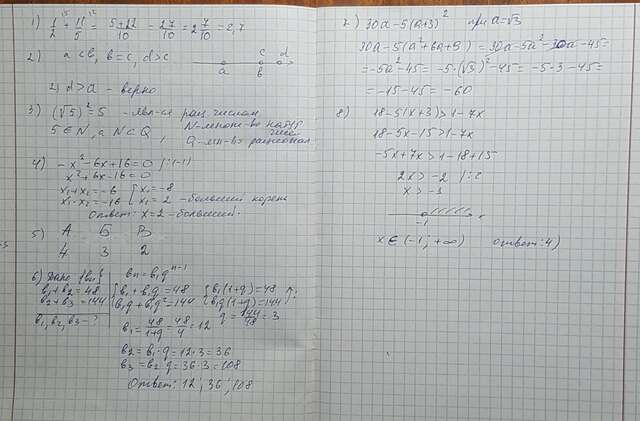 1) 1/2 + 11/5 = 5+22/10 = 27/10 = 2 7/10 = 2,7
2) a<b, b=c, d>c
a c b d
2) d>a - верно
3) (√5)² = 5 - явл-ся рац числом
5∈N, a N⊂Q, N-множ-во нат
Q-мн-во рационал
4) -x²-6x+16=0 /:(-1)
x²+6x-16=0
x₁+x₂=-6 { x₁=-8
x₁·x₂=-16 x₂=2 - больший корень
Ответ: x=2 - больший.
5) А Б В
4 3 2
6) Дано {bn} bn=b₁qⁿ⁻¹
b₁+b₂=48 { b₁+b₁q=48 { b₁(1+q)=48
b₂+b₃=144 b₁q+b₁q²=144 b₁q(1+q)=144
b₁, b₂, b₃-? q=144/48=3
b₁=48/1+q=48/4=12
b₂=b₁·q=12·3=36
b₃=b₂·q=36·3=108
Ответ: 12; 36; 108
7) 30a-5(a+3)² при a=√3
30a-5(a²+6a+9)=30a-5a²-30a-45=
=-5a²-45=-5·(√3)²-45=-5·3-45=
=-15-45=-60
8) 18-5(x+3)>1-7x
18-5x-15>1-7x
-5x+7x>1-18+15
2x>-2 /:2
x>-1
-1 x
x∈(-1;+∞) Ответ: 4)